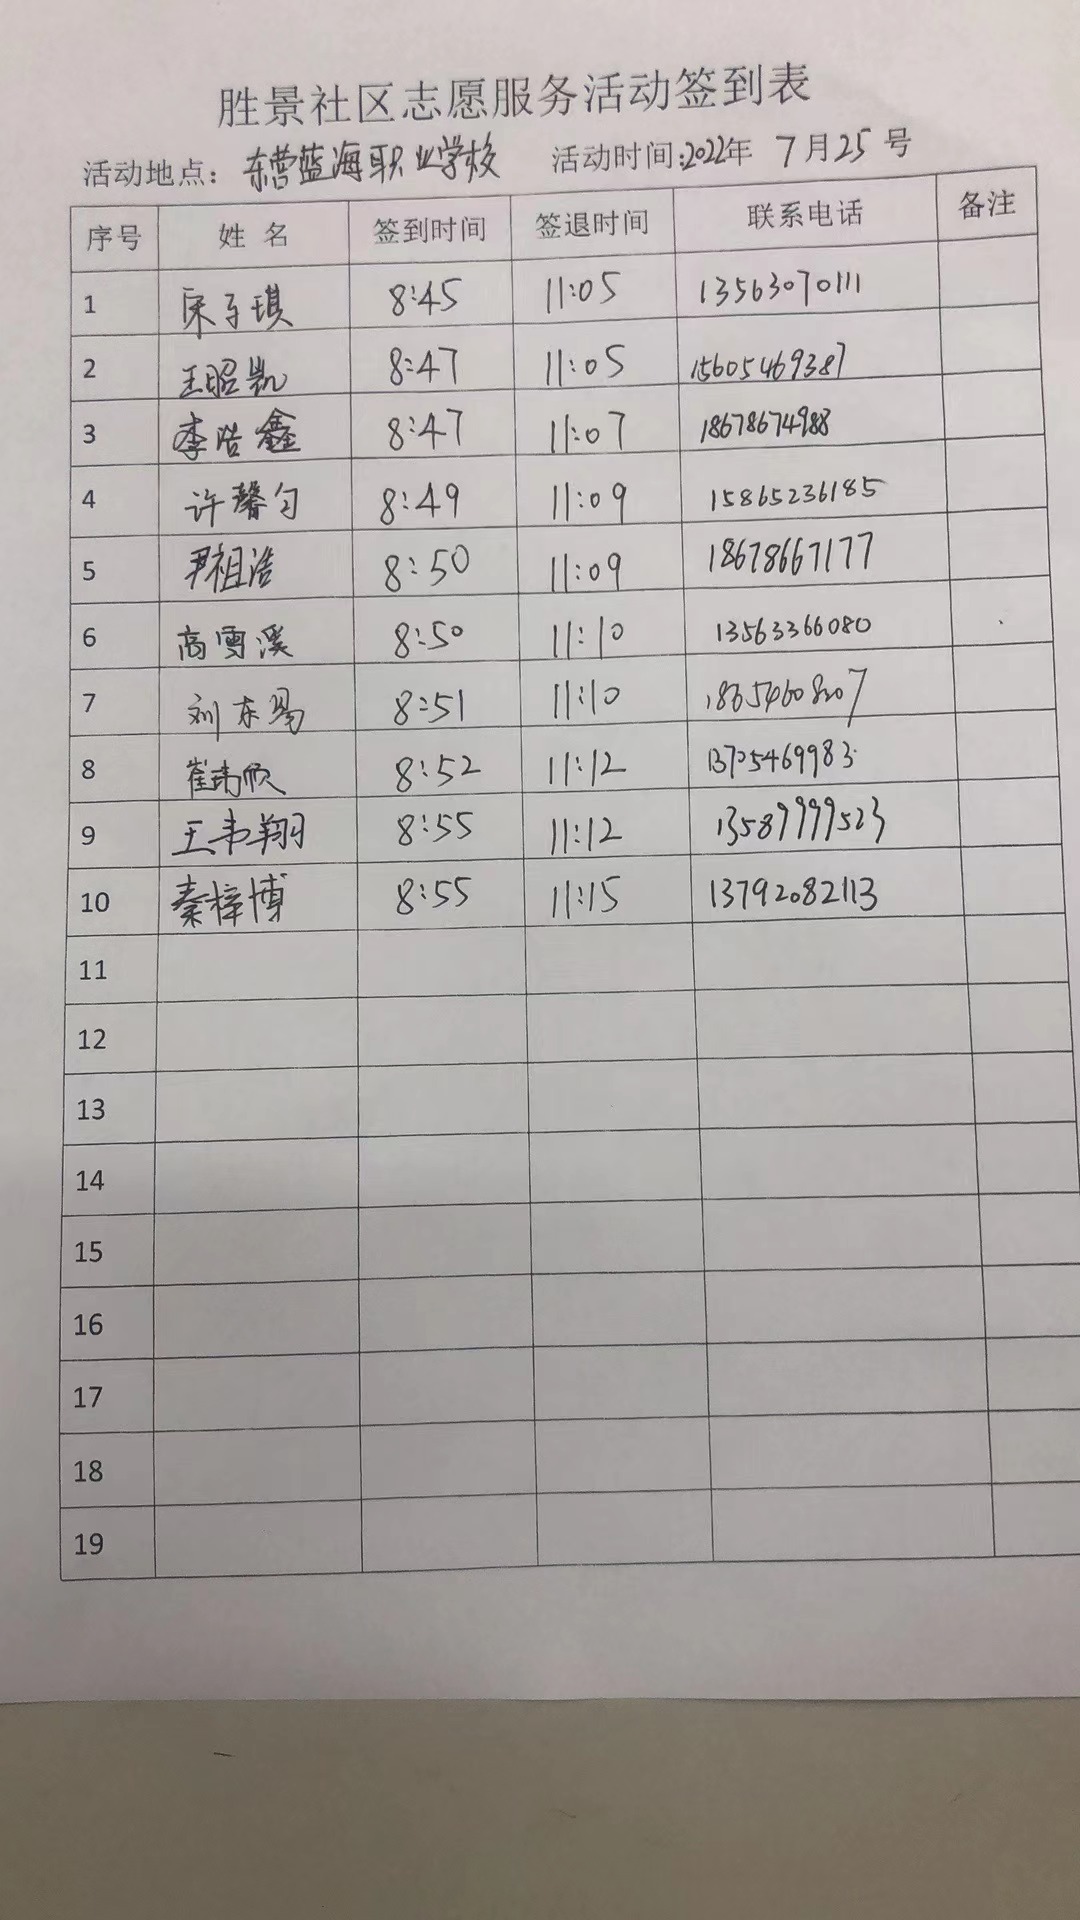 胜景社区志愿服务活动签到表
活动地点：东营蓝海职业学校 活动时间:2022年 7月25号
序号 姓名 签到时间 签退时间 联系电话 备注
1 宋子琪 8:45 11:05 13563070111
2 王昭凯 8:47 11:05 15605469387
3 李浩鑫 8:47 11:07 18678674988
4 许馨匀 8:49 11:09 15865236185
5 尹祖浩 8:50 11:09 18678667177
6 高雪溪 8:50 11:10 13563366080
7 刘东易 8:51 11:10
8 8:52 11:12
9 王韦翔 8:55 11:12 13589999523
10 秦梓博 8:55 11:15 13792082113
11
12
13
14
15
16
17
18
19